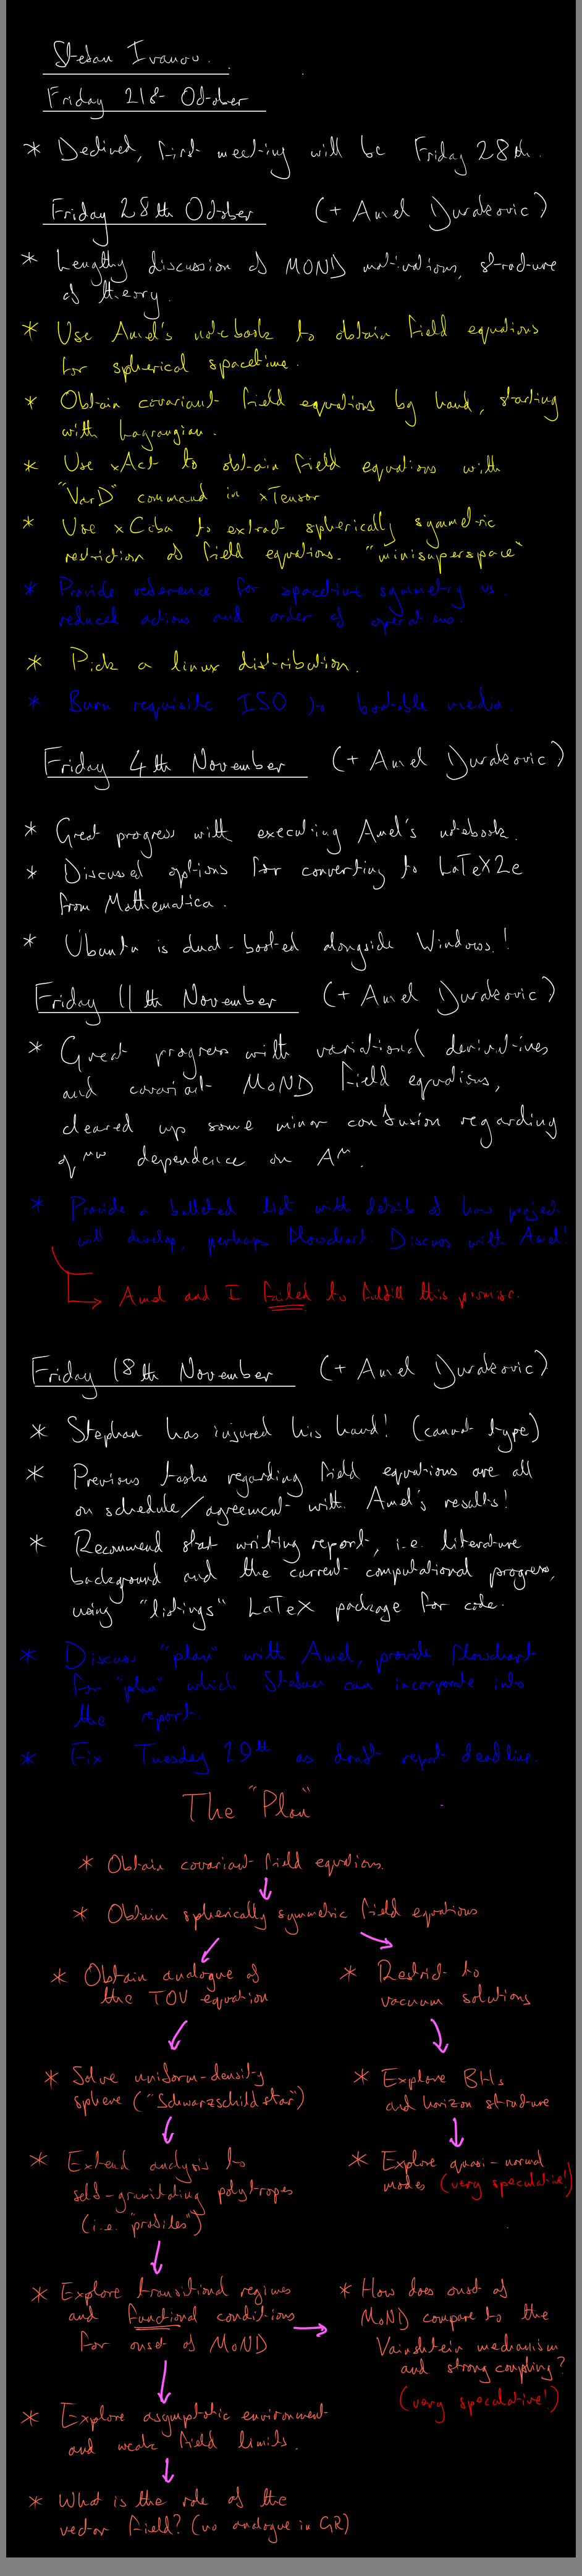 Stefan Ivanov.
Friday 21st October
* Declined, first meeting will be Friday 28th.
Friday 28th October (+ Amel Durakovic)
* Lengthy discussion of MOND motivations, structure
of theory.
* Use Amel's notebook to obtain field equations
for spherical spacetime.
* Obtain covariant field equations by hand, starting
with Lagrangian.
* Use xAct to obtain field equations with
"VarD" command in xTensor
* Use xCoba to extract spherically symmetric
restriction of field equations. "minisuperspace"
* Provide reference for spacetime symmetry vs.
reduced actions and order of operations.
* Pick a linux distribution.
* Burn requisite ISO to bootable media
Friday 4th November (+ Amel Durakovic)
* Great progress with executing Amel's notebook.
* Discussed options for converting to LaTeX2e
from Mathematica.
* Ubuntu is dual-booted alongside Windows!
Friday 11th November (+ Amel Durakovic)
* Great progress with variational derivatives
and covariant MOND field equations,
cleared up some minor confusion regarding
g^μν dependence on A^μ.
* Provide a bulleted list with details of how project
will develop, perhaps flowchart. Discuss with Amel!
Amel and I failed to fulfill this promise.
Friday 18th November (+ Amel Durakovic)
* Stephan has injured his hand! (cannot type)
* Previous tasks regarding field equations are all
on schedule/agreement with Amel's results!
* Recommend start writing report, i.e. literature
background and the current computational progress,
using "listings" LaTeX package for code.
* Discuss "plan" with Amel, provide flowchart
for "plan" which Stefan can incorporate into
the report
* Fix Tuesday 29th as draft report deadline.
The "Plan"
* Obtain covariant field equations.
* Obtain spherically symmetric field equations
* Obtain analogue of
the TOV equation
* Restrict to
vacuum solutions
* Solve uniform-density
sphere ("Schwarzschild star")
* Explore BHs
and horizon structure
* Extend analysis to
self-gravitating polytropes
(i.e. "profiles")
* Explore quasi-normal
modes (very speculative!)
* Explore transitional regimes
and functional conditions
for onset of MOND
* How does onset of
MOND compare to the
Vainshtein mechanism
and strong coupling?
(very speculative!)
* Explore asymptotic environment
and weak field limits.
* What is the role of the
vector field? (no analogue in GR)